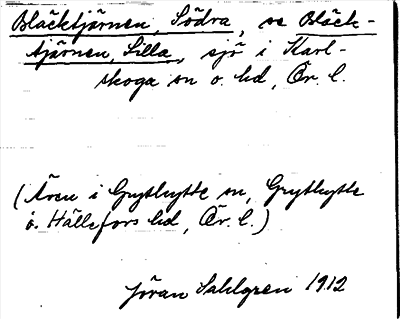 Bläcktjärnen, Södra, se Bläck-
tjärnen, Lilla, sjö i Karl-
skoga sn o. hd, Ör. l.
(Även i Grythytte sn, Grythytte
o. Hällefors hd, Ör. l.)
Jöran Sahlgren 1912